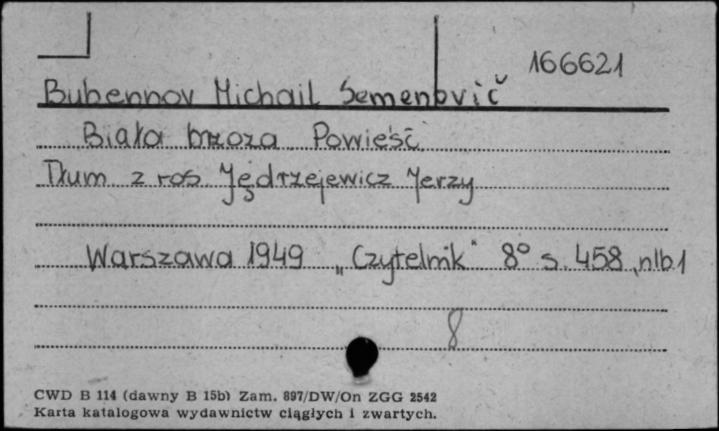 166621
Bubennov Michail Semenovič
Biała brzoza Powieść
Tłum z ros. Jędrzejewicz Jerzy
Warszawa 1949 „Czytelnik" 8° s. 458, nlb 1
8
CWD B 114 (dawny B 15b) Zam. 897/DW/On ZGG 2542
Karta katalogowa wydawnictw ciągłych i zwartych.